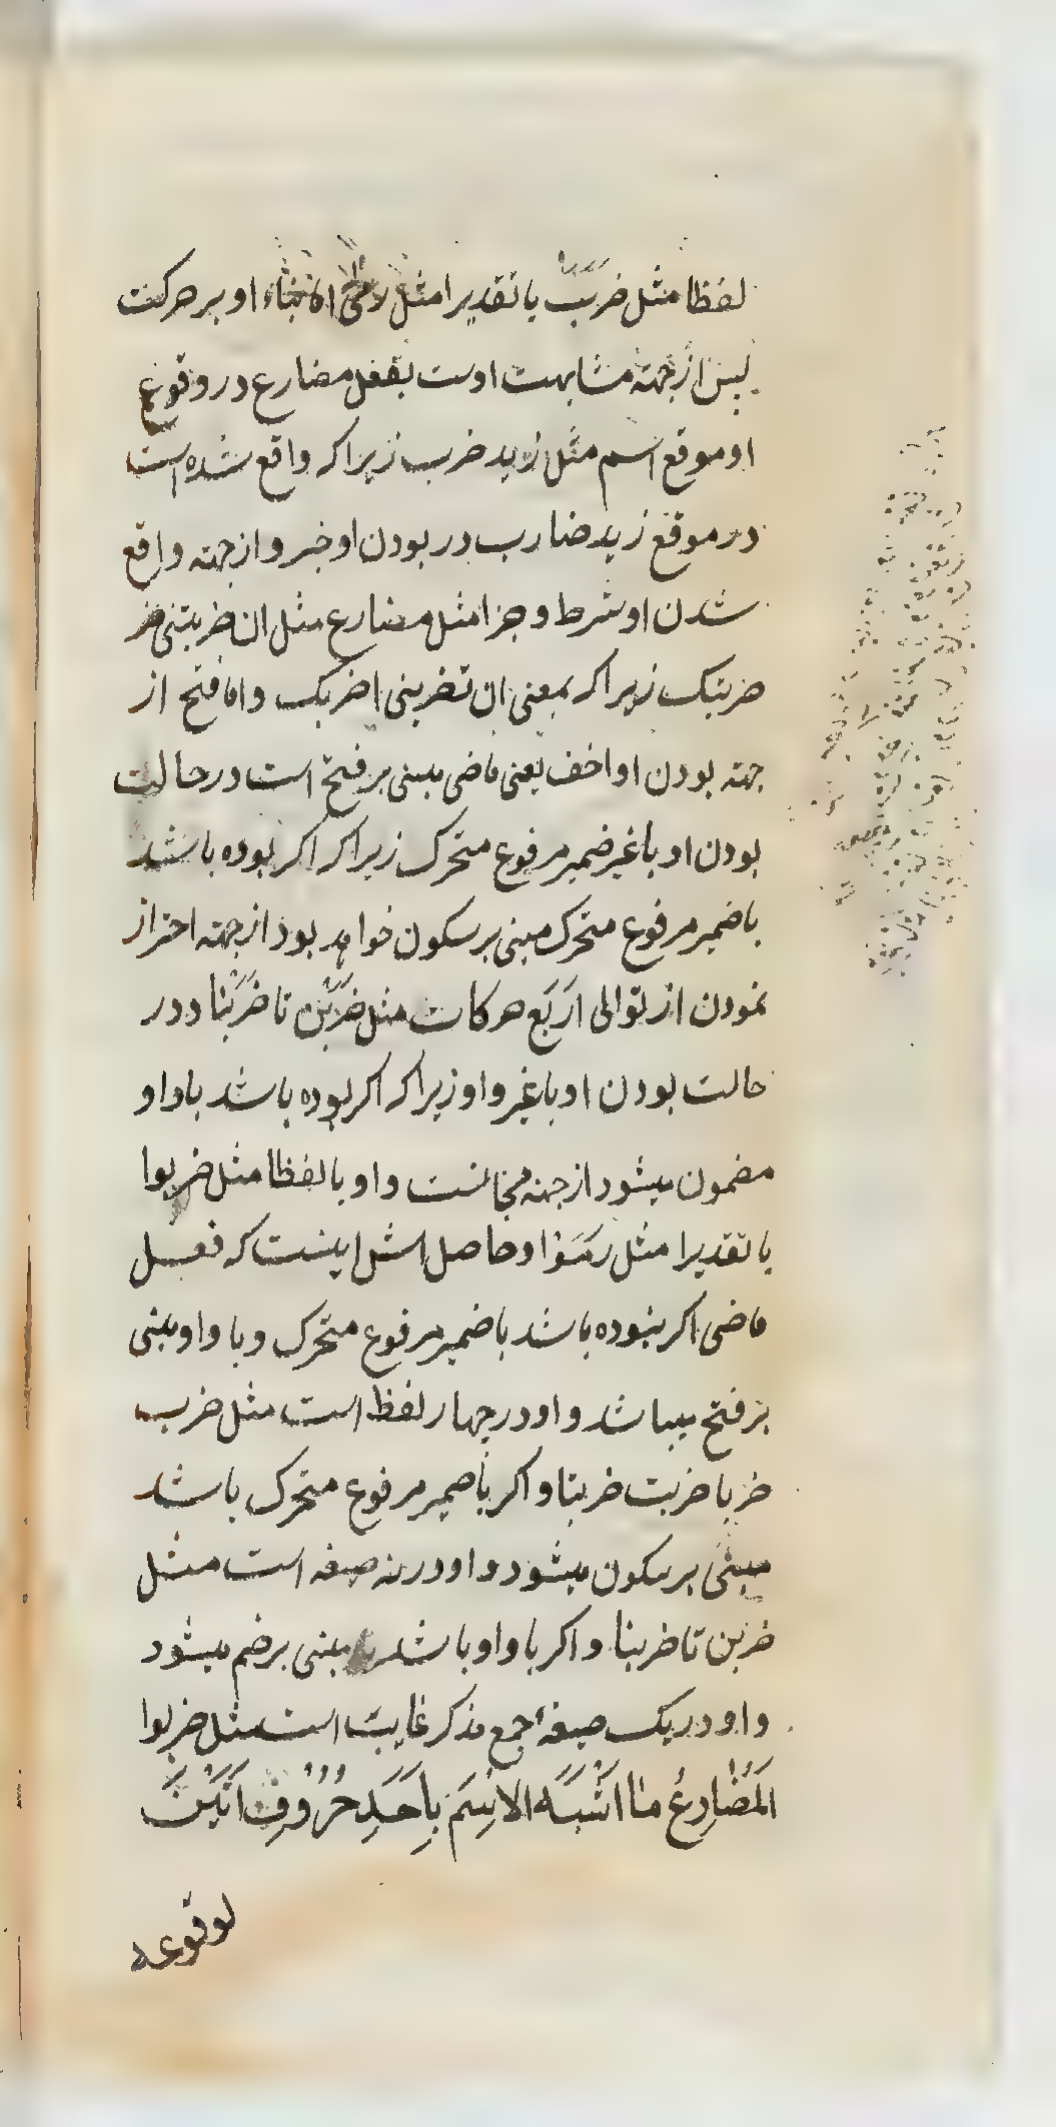 لفظا مثل ضَرَبَ یا تقدیرا مثل رمی اما بناء او بر حرکت
پس از جهته مشابهت اوست بفعل مضارع در وقوع
او موقع اسم مثل زید ضرب زیرا که واقع شده است
در موقع زید ضارب در بودن او خبر و از جهته واقع
شدن او شرط و جزا مثل مضارع مثل ان ضربتنی ضر
ضربتک زیرا که بمعنی ان تضربنی اضربک و اما فتح از
جهته بودن او اخف یعنی ماضی مبنی بر فتح است در حالت
بودن او با غیر ضمیر مرفوع متحرک زیرا که اکر بوده باشد
با ضمیر مرفوع متحرک مبنی بر سکون خواهد بود از جهته احتراز
نمودن از توالی اَربَع حرکات مثل ضَرَبْنَ تا ضَرَبْنا و در
حالت بودن او با غیر واو زیرا که اکر بوده باشد با واو
مضمون میشود از جهته مجانست واو یا لفظا مثل ضربوا
یا تقدیرا مثل رَمَوْا و حاصلش اینست که فعل
ماضی اکر نبوده باشد با ضمیر مرفوع متحرک و با واو مبنی
بر فتح میباشد و او در چهار لفظ است مثل ضرب
ضربا ضربت ضربتا و اکر با ضمیر مرفوع متحرک باشد
مبنی بر سکون میشود و او در نه صیغه است مثل
ضربن تا ضربنا و اکر با واو باشد مبنی بر ضم میشود
و او در یک صیغهٔ جمع مذکر غایب است مثل ضربوا
اَلمُضٰارِعُ مٰا اَشْبَهَ الاِسْمَ بِاَحَدِ حُرُوفِ اَتَیْنَ
لوقوعه